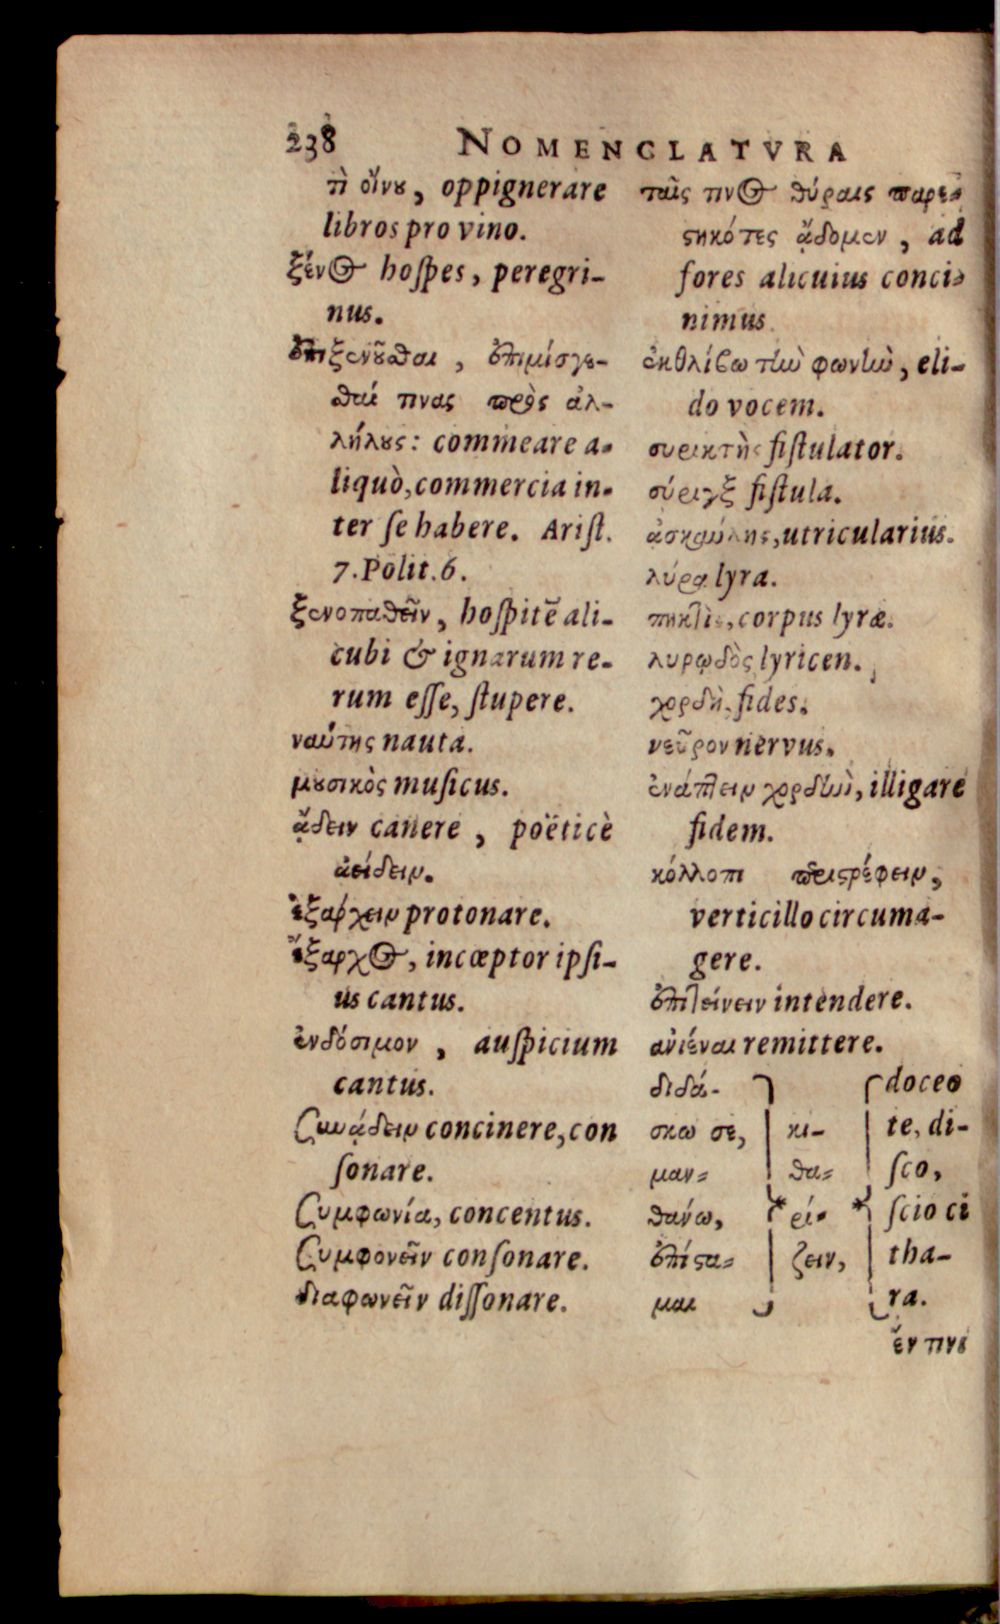 238 NOMENCLATVRA
τὶ οἴνου, oppignerare
libros pro vino.
ξένος hoſpes, peregri-
nus.
ἐπιξενοῦσθαι, ἐπιμίσγε-
σθαί τινας πρὸς ἀλ-
λήλους: commeare a-
liquò, commercia in-
ter ſe habere. Ariſt.
7. Polit. 6.
ξενοπαθεῖν, hoſpitē ali-
cubi & ignarum re-
rum eſſe, ſtupere.
ναύτης nauta.
μουσικὸς muſicus.
ᾄδειν canere, poëticè
ἀείδειν.
ἐξάρχειν protonare.
ἔξαρχος, incœptor ipſi-
us cantus.
ἐνδόσιμον, auſpicium
cantus.
Συνάδειν concinere, con
ſonare.
Συμφωνία, concentus.
Συμφονεῖν conſonare.
διαφωνεῖν diſſonare.
ταῖς τινος θύραις παρε-
στηκότες ᾄδομεν, ad
fores alicuius conci-
nimus.
ἐκθλίβω τὴν φωνὴν, eli-
do vocem.
συρικτὴς fiſtulator.
σύριγξ fiſtula.
ἀσκαύλης, utricularius.
λύρα lyra.
πηκτὶς, corpus lyræ.
λυρῳδὸς lyricen.
χορδὴ, fides.
νεῦρον nervus.
ἐνάπτειν χορδὴν, illigare
fidem.
κόλλοπι περιστρέφειν,
verticillo circuma-
gere.
ἐπιτείνειν intendere.
ἀνιέναι remittere.
διδά- doceo
σκω σε, κι- te, di-
μαν- θα- ſco,
θάνω, ρί- ſcio ci
ἐπίστα- ζειν, tha-
μαι ra.
ἔν τινι